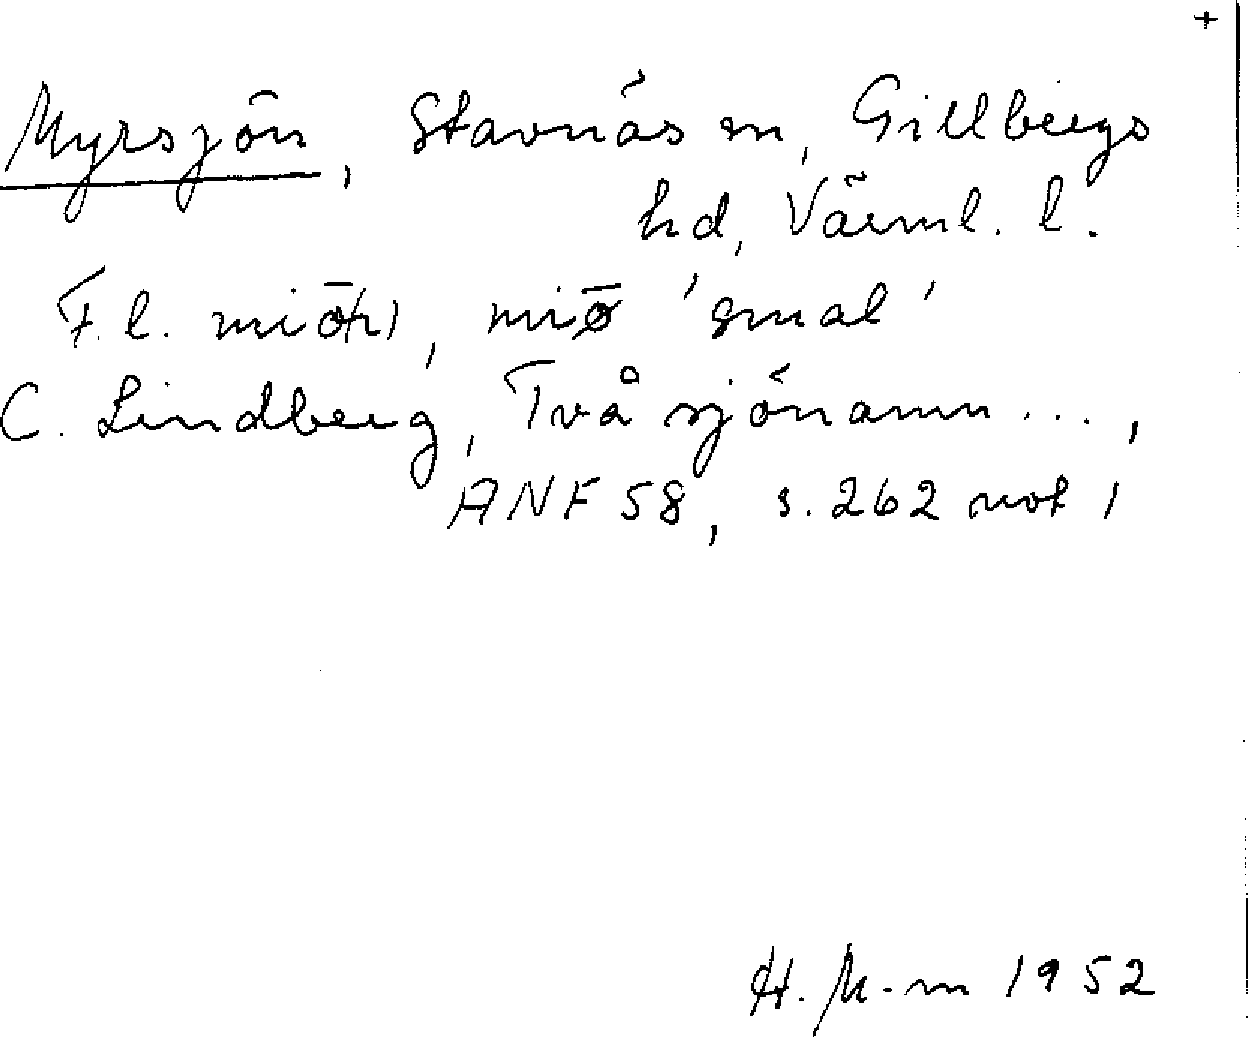 +
Myrsjön, Stavnäs sn, Gillbergs
hd, Värml. l.
F.l. miō(r), miø̄ 'smal'
C. Lindberg, Två sjönamn...,
ANF 58, s. 262 not 1
H. M-m 1952